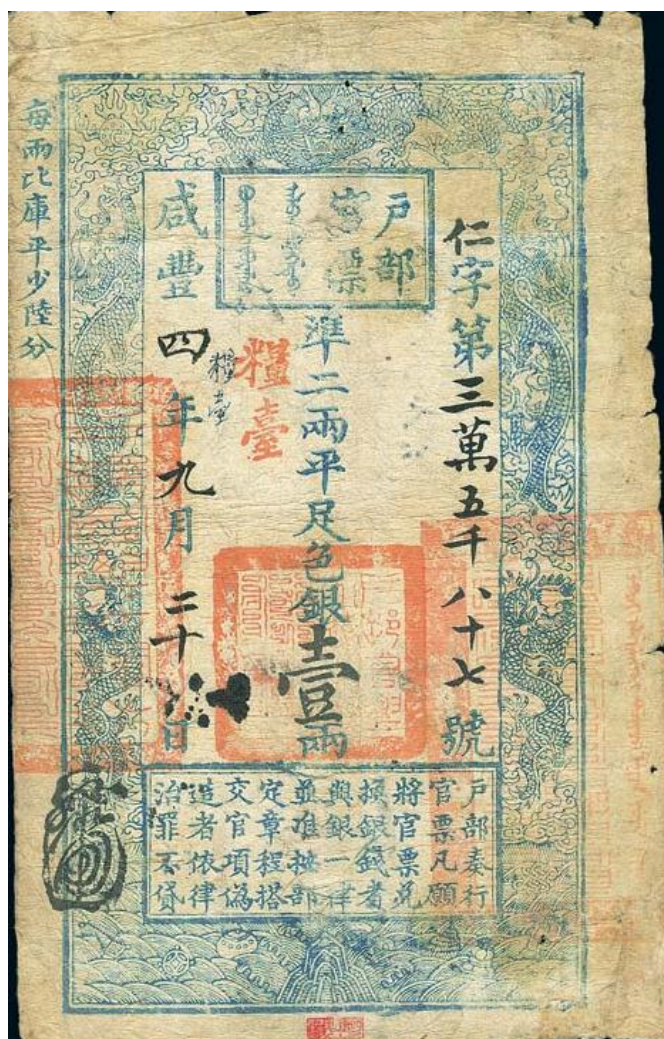 戶部
官票
仁字第三萬五千八十七號
準二兩平足色銀壹兩
糧臺
糧臺
咸豐四年九月二十日
每兩比庫平少陸分
戶部奏行
官票凡願
將官票兌
換銀錢者
與銀一律
並准按部
定章程搭
交官項偽
造者依律
治罪不貸